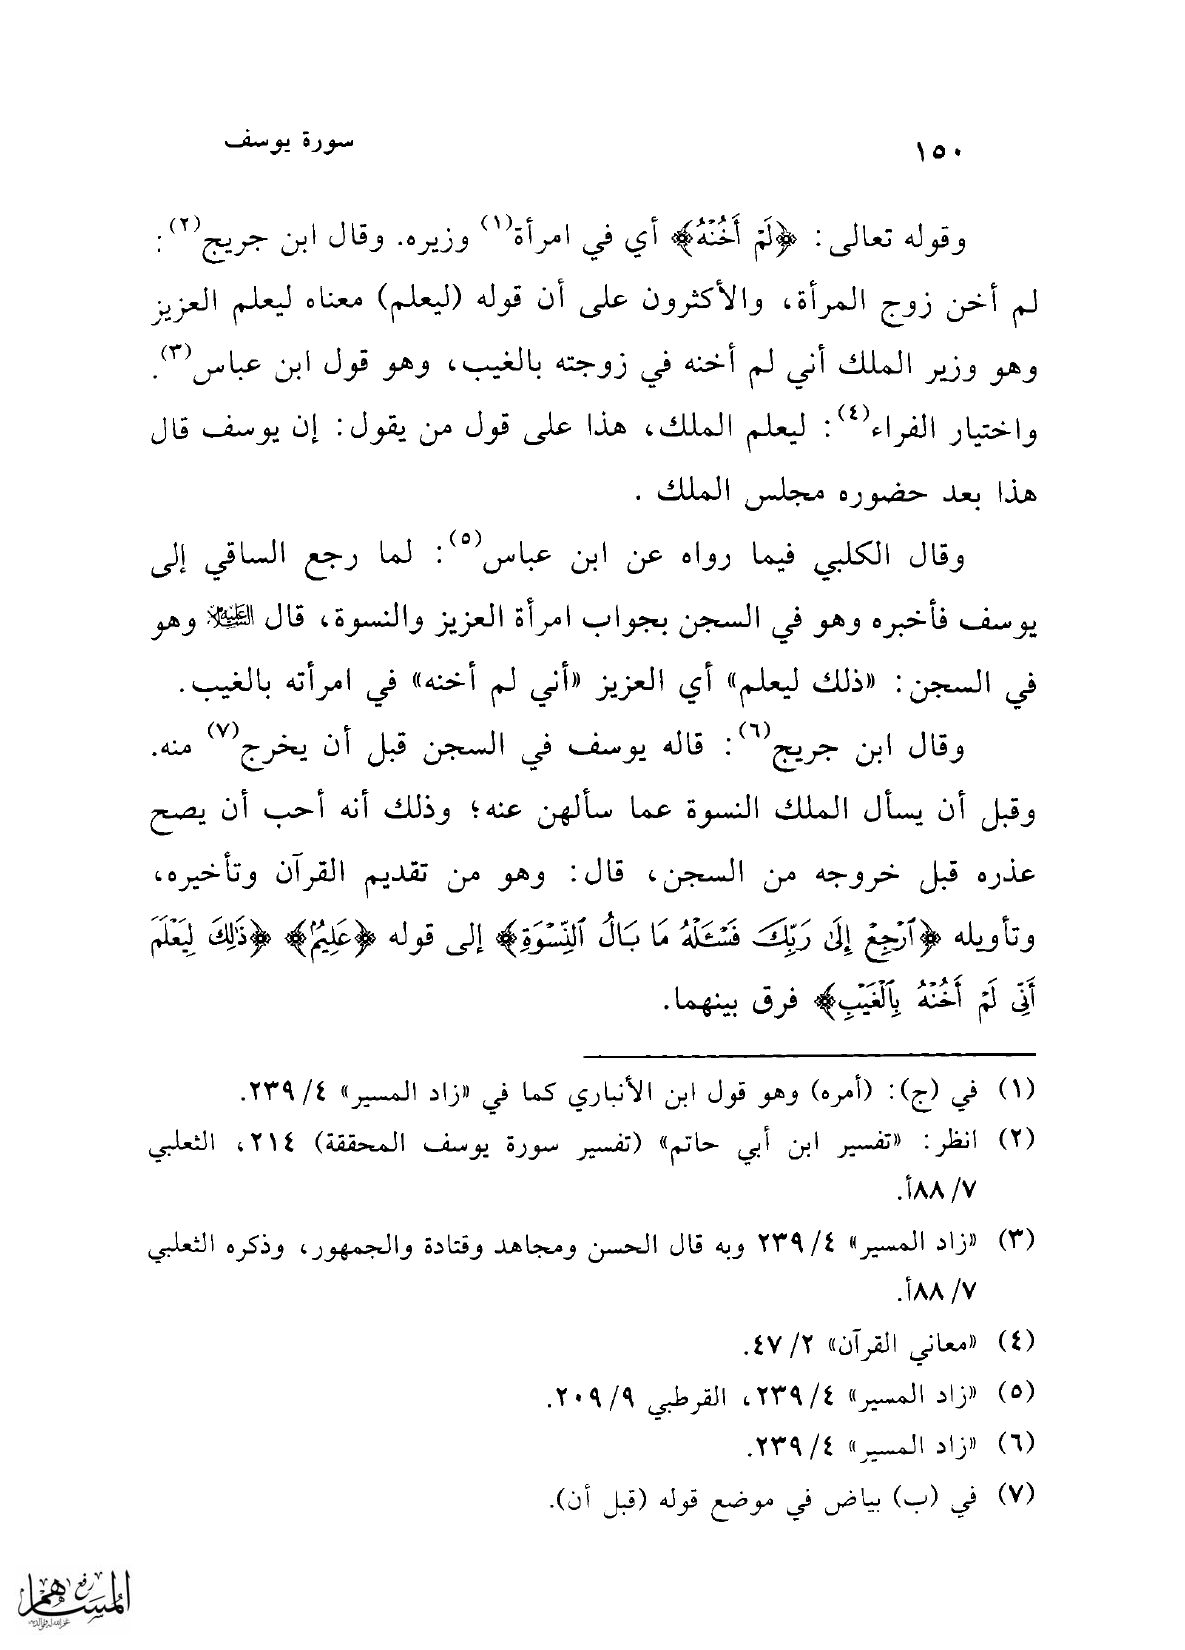 ١٥٠ سورة يوسف
وقوله تعالى: ﴿لَمْ أَخُنْهُ﴾ أي في امرأة(١) وزيره. وقال ابن جريج(٢):
لم أخن زوج المرأة، والأكثرون على أن قوله (ليعلم) معناه ليعلم العزيز
وهو وزير الملك أني لم أخنه في زوجته بالغيب، وهو قول ابن عباس(٣).
واختيار الفراء(٤): ليعلم الملك، هذا على قول من يقول: إن يوسف قال
هذا بعد حضوره مجلس الملك .
وقال الكلبي فيما رواه عن ابن عباس(٥): لما رجع الساقي إلى
يوسف فأخبره وهو في السجن بجواب امرأة العزيز والنسوة، قال عليه السلام وهو
في السجن: «ذلك ليعلم» أي العزيز «أني لم أخنه» في امرأته بالغيب.
وقال ابن جريج(٦): قاله يوسف في السجن قبل أن يخرج(٧) منه.
وقبل أن يسأل الملك النسوة عما سألهن عنه؛ وذلك أنه أحب أن يصح
عذره قبل خروجه من السجن، قال: وهو من تقديم القرآن وتأخيره،
وتأويله ﴿ٱرْجِعْ إِلَىٰ رَبِّكَ فَسْـَٔلْهُ مَا بَالُ ٱلنِّسْوَةِ﴾ إلى قوله ﴿عَلِيمٌ﴾ ﴿ذَٰلِكَ لِيَعْلَمَ
أَنِّى لَمْ أَخُنْهُ بِٱلْغَيْبِ﴾ فرق بينهما.
(١) في (ج): (أمره) وهو قول ابن الأنباري كما في «زاد المسير» ٤/ ٢٣٩.
(٢) انظر: «تفسير ابن أبي حاتم» (تفسير سورة يوسف المحققة) ٢١٤، الثعلبي
٧/ ٨٨أ.
(٣) «زاد المسير» ٤/ ٢٣٩ وبه قال الحسن ومجاهد وقتادة والجمهور، وذكره الثعلبي
٧/ ٨٨أ.
(٤) «معاني القرآن» ٢/ ٤٧.
(٥) «زاد المسير» ٤/ ٢٣٩، القرطبي ٩/ ٢٠٩.
(٦) «زاد المسير» ٤/ ٢٣٩.
(٧) في (ب) بياض في موضع قوله (قبل أن).
رفع
المساهم